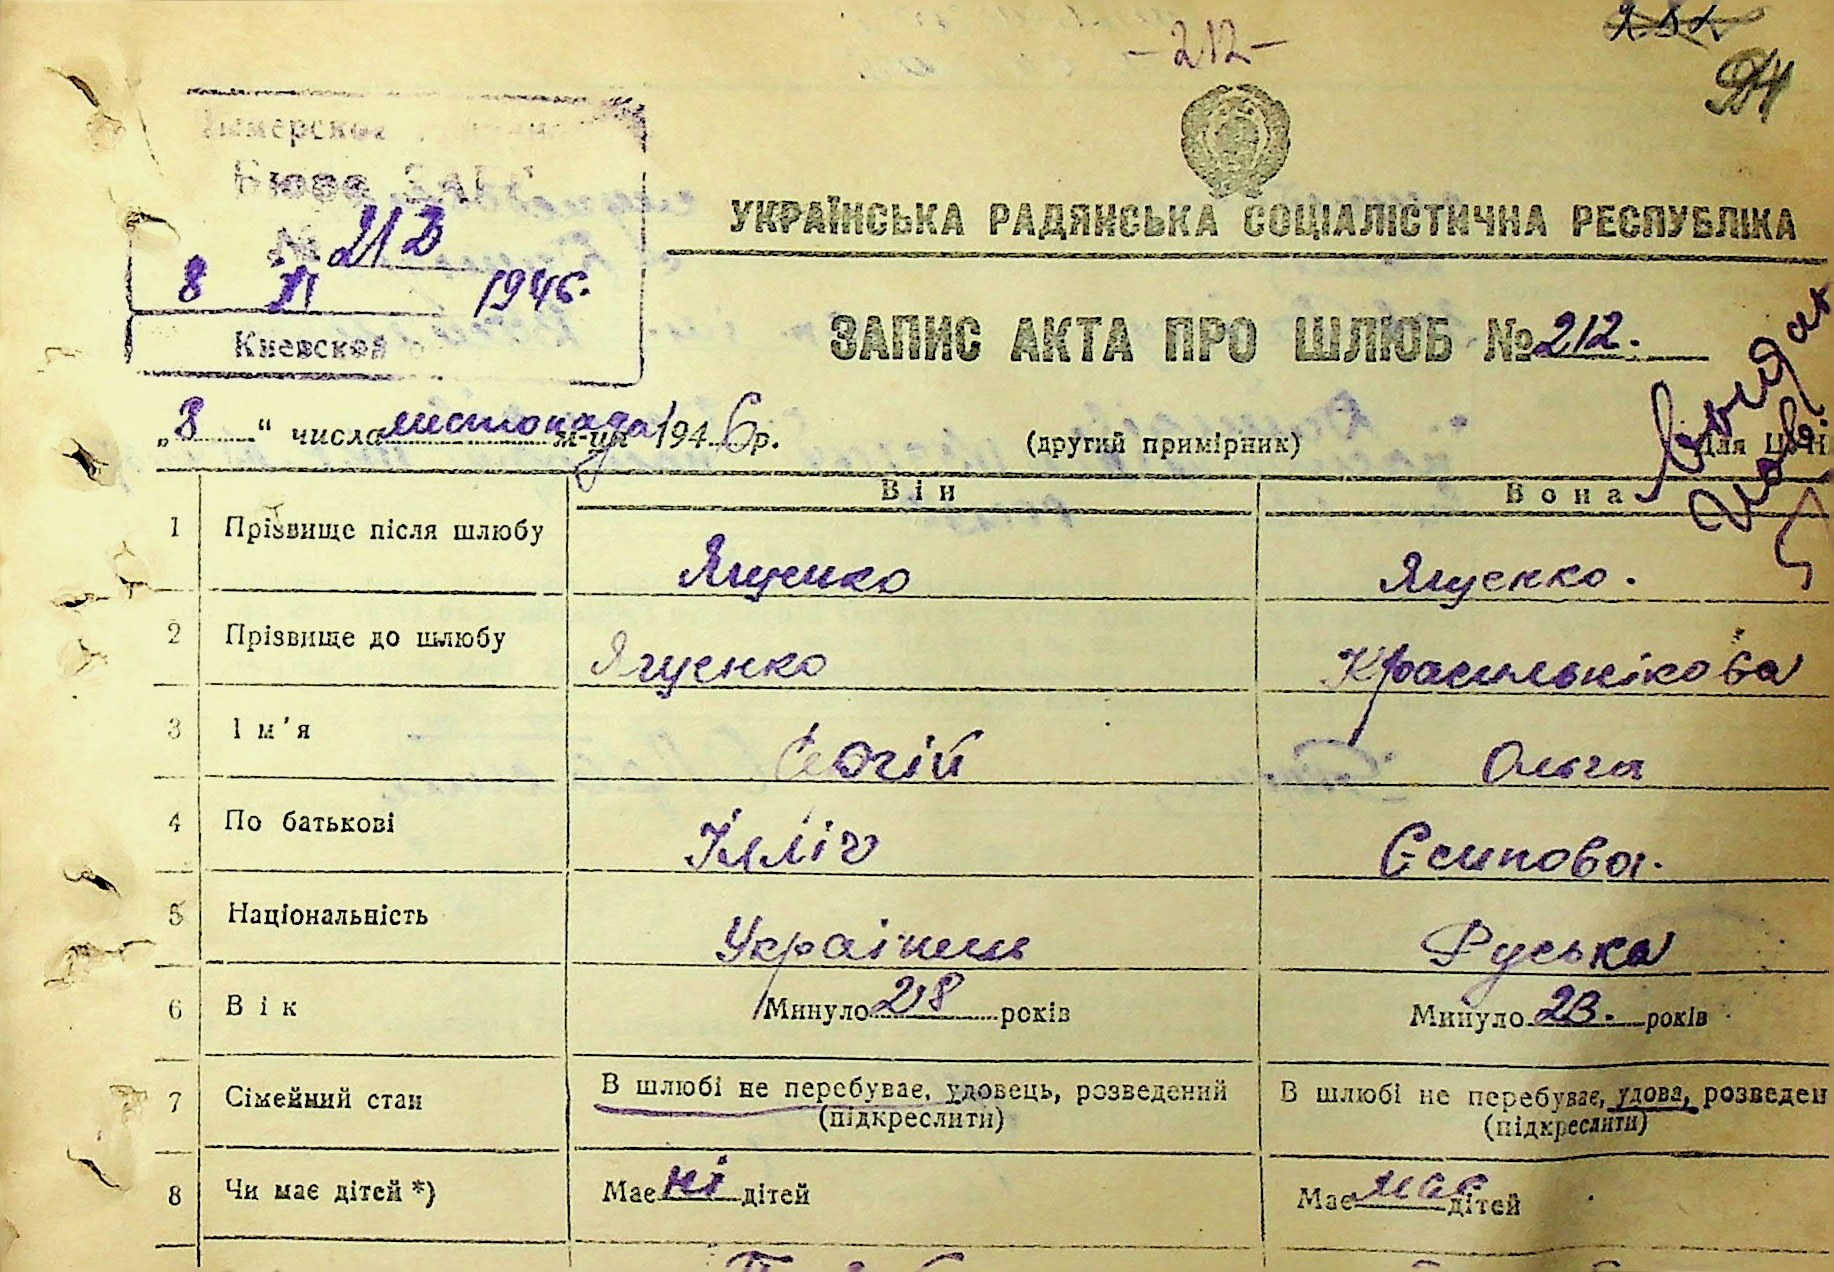 - 212 -
Димерское
Бюро ЗАГС
№ 212
8 XI 1946.
Киевской
УКРАЇНСЬКА РАДЯНСЬКА СОЦІАЛІСТИЧНА РЕСПУБЛІКА
ЗАПИС АКТА ПРО ШЛЮБ № 212.
„8“ числа листопада м-ця 1946 р. (другий примірник) Для
Він Вона
1 Прізвище після шлюбу Ященко Ященко.
2 Прізвище до шлюбу Ященко Красильнікова
3 Ім'я Ольга
4 По батькові Ілліч Єсипова.
5 Національність Українець Руська
6 Вік Минуло 28 років Минуло 23. років
7 Сімейний стан В шлюбі не перебуває, удовець, розведений В шлюбі не перебуває, удова, розведен
(підкреслити) (підкреслити)
8 Чи має дітей *) Має ні дітей Має має дітей